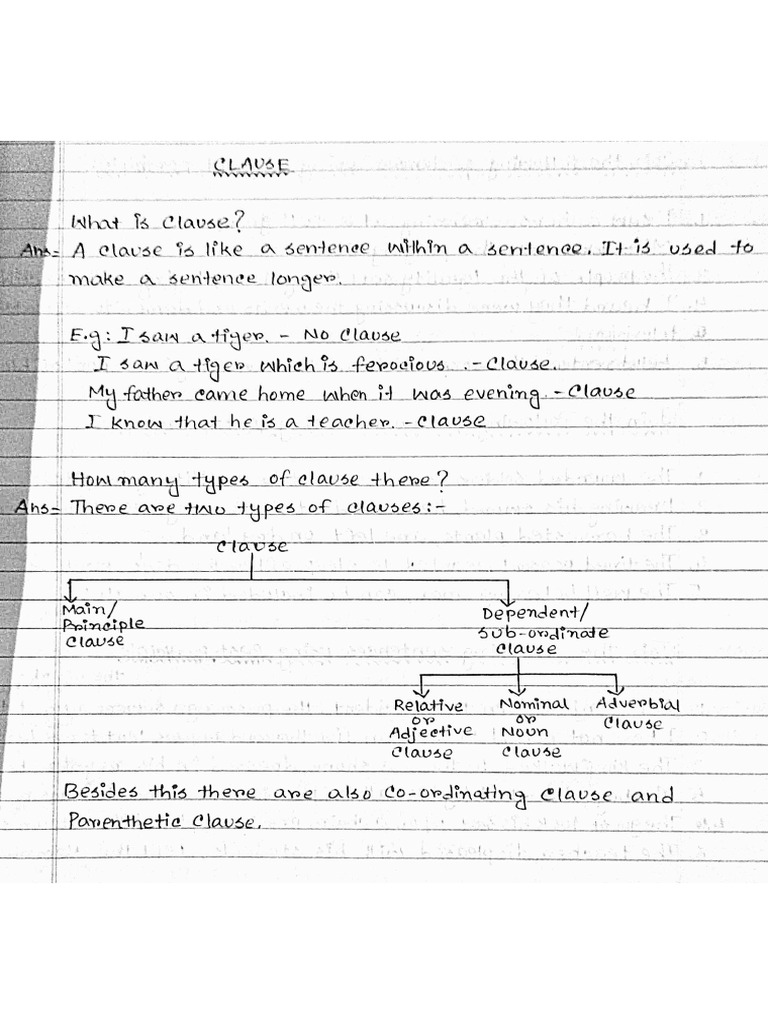 CLAUSE
What is clause?
Ans= A clause is like a sentence within a sentence. It is used to
make a sentence longer.
E.g: I saw a tiger. - No Clause
I saw a tiger which is ferocious. - Clause.
My father came home when it was evening. - Clause
I know that he is a teacher. - Clause
How many types of clause there?
Ans= There are two types of clauses:-
Clause
Main/
Principle
Clause
Dependent/
Sub-ordinate
Clause
Relative
or
Adjective
Clause
Nominal
or
Noun
Clause
Adverbial
Clause
Besides this there are also Co-ordinating Clause and
Parenthetic Clause.